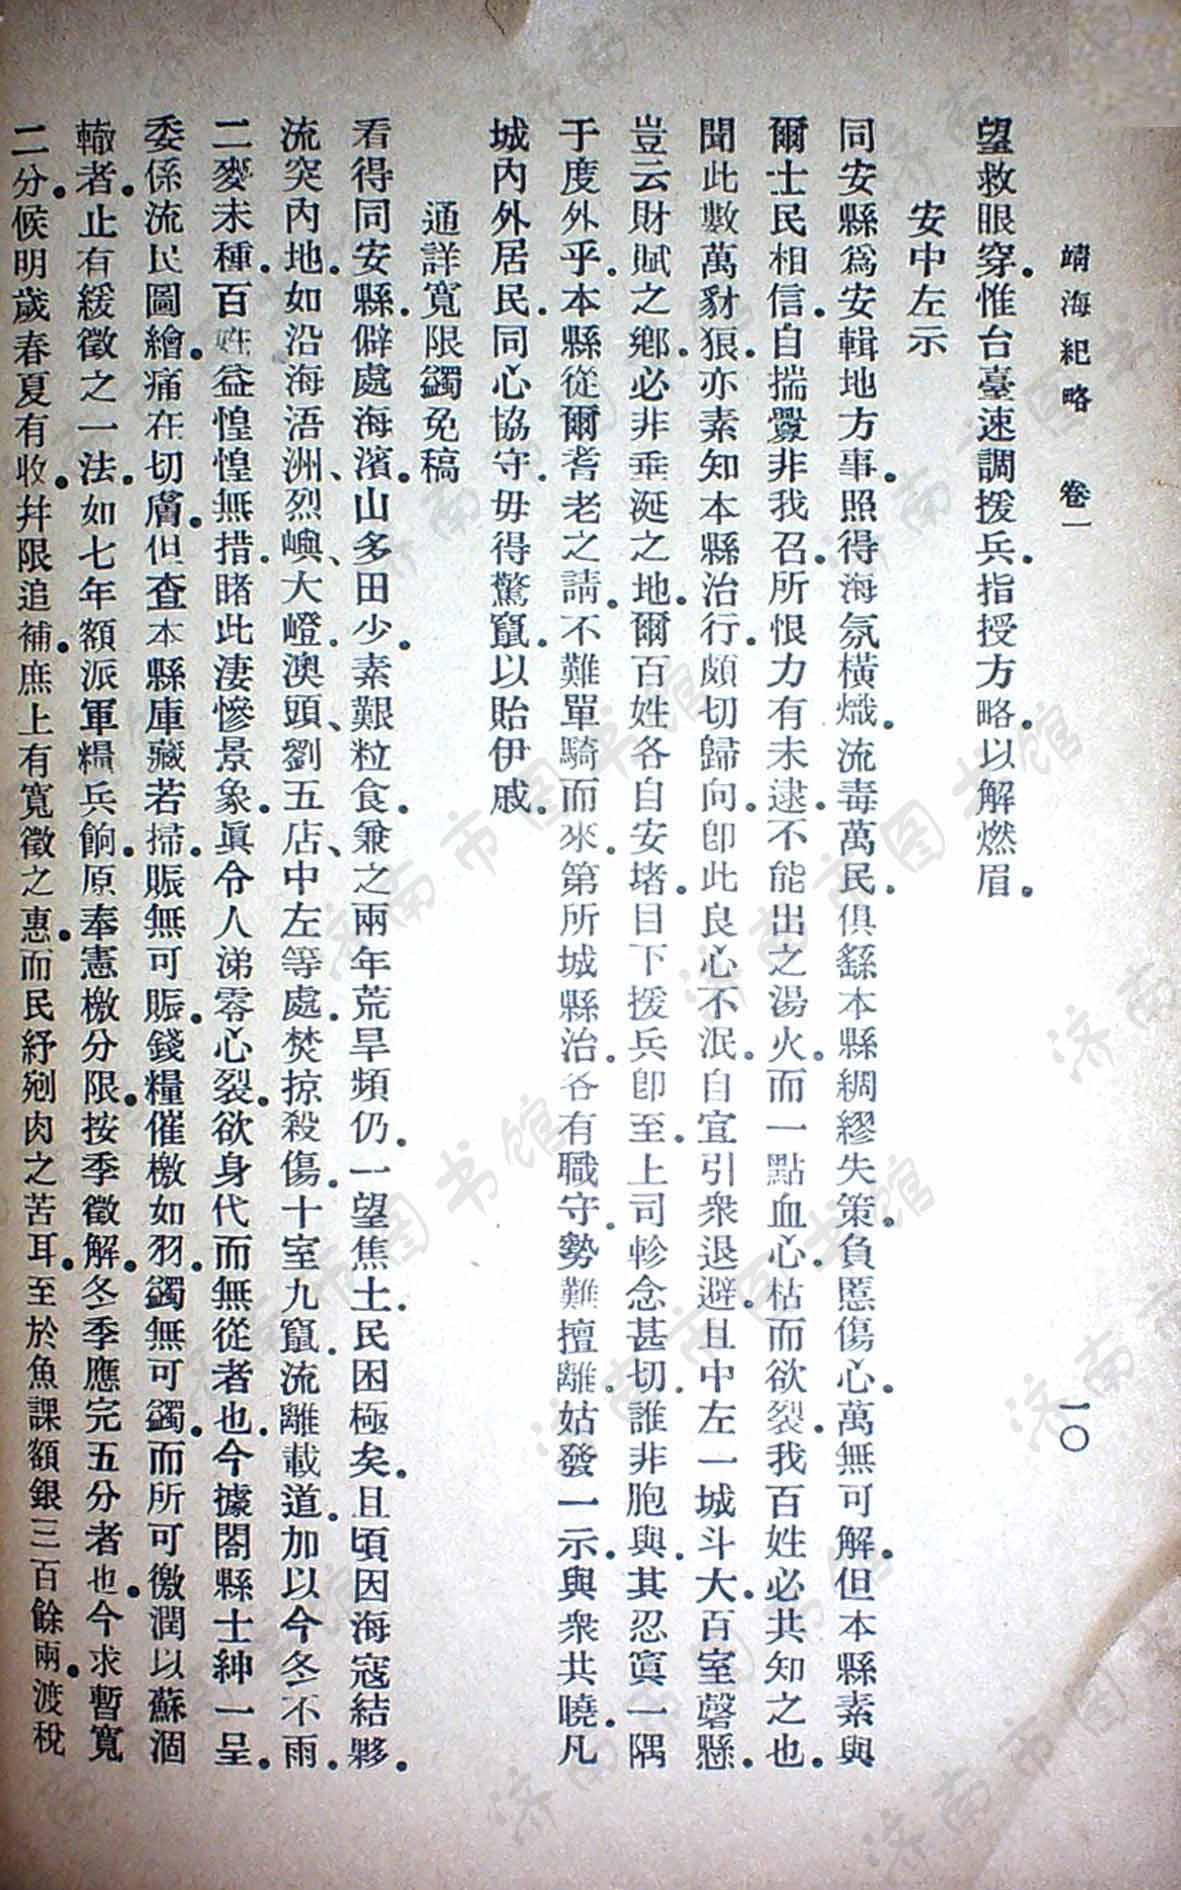 靖海紀略　卷一　一〇
望救眼穿。惟台臺速調援兵。指授方略。以解燃眉。
安中左示
同安縣爲安輯地方事。照得海氛橫熾。流毒萬民。俱繇本縣綢繆失策。負慝傷心。萬無可解。但本縣素與
爾士民相信。自揣釁非我召。所恨力有未逮。不能出之湯火。而一點血心。枯而欲裂。我百姓必共知之也。
聞此數萬豺狼。亦素知本縣治行。頗切歸向。卽此良心不泯。自宜引衆退避。且中左一城斗大。百室磬懸。
豈云財賦之鄉。必非垂涎之地。爾百姓各自安堵。目下援兵卽至。上司軫念甚切。誰非胞與。其忍寘一隅
于度外乎。本縣從爾耆老之請。不難單騎而來。第所城縣治。各有職守。勢難擅離。姑發一示。與衆共曉。凡
城內外居民。同心協守。毋得驚竄。以貽伊戚。
通詳寬限蠲免稿
看得同安縣。僻處海濱。山多田少。素艱粒食。兼之兩年荒旱頻仍。一望焦土。民困極矣。且頃因海寇結夥。
流突內地。如沿海浯洲、烈嶼、大嶝、澳頭、劉五店、中左等處。焚掠殺傷。十室九竄。流離載道。加以今冬不雨。
二麥未種。百姓益惶惶無措。睹此淒慘景象。眞令人涕零心裂。欲身代而無從者也。今據閤縣士紳一呈。
委係流民圖繪。痛在切膚。但查本縣庫藏若掃。賑無可賑。錢糧催檄如羽。蠲無可蠲。而所可徼潤以蘇涸
轍者。止有緩徵之一法。如七年額派軍糧兵餉。原奉憲檄分限。按季徵解。冬季應完五分者也。今求暫寬
二分。候明歲春夏有收。幷限追補。庶上有寬徵之惠。而民紓剜肉之苦耳。至於魚課額銀三百餘兩。渡稅